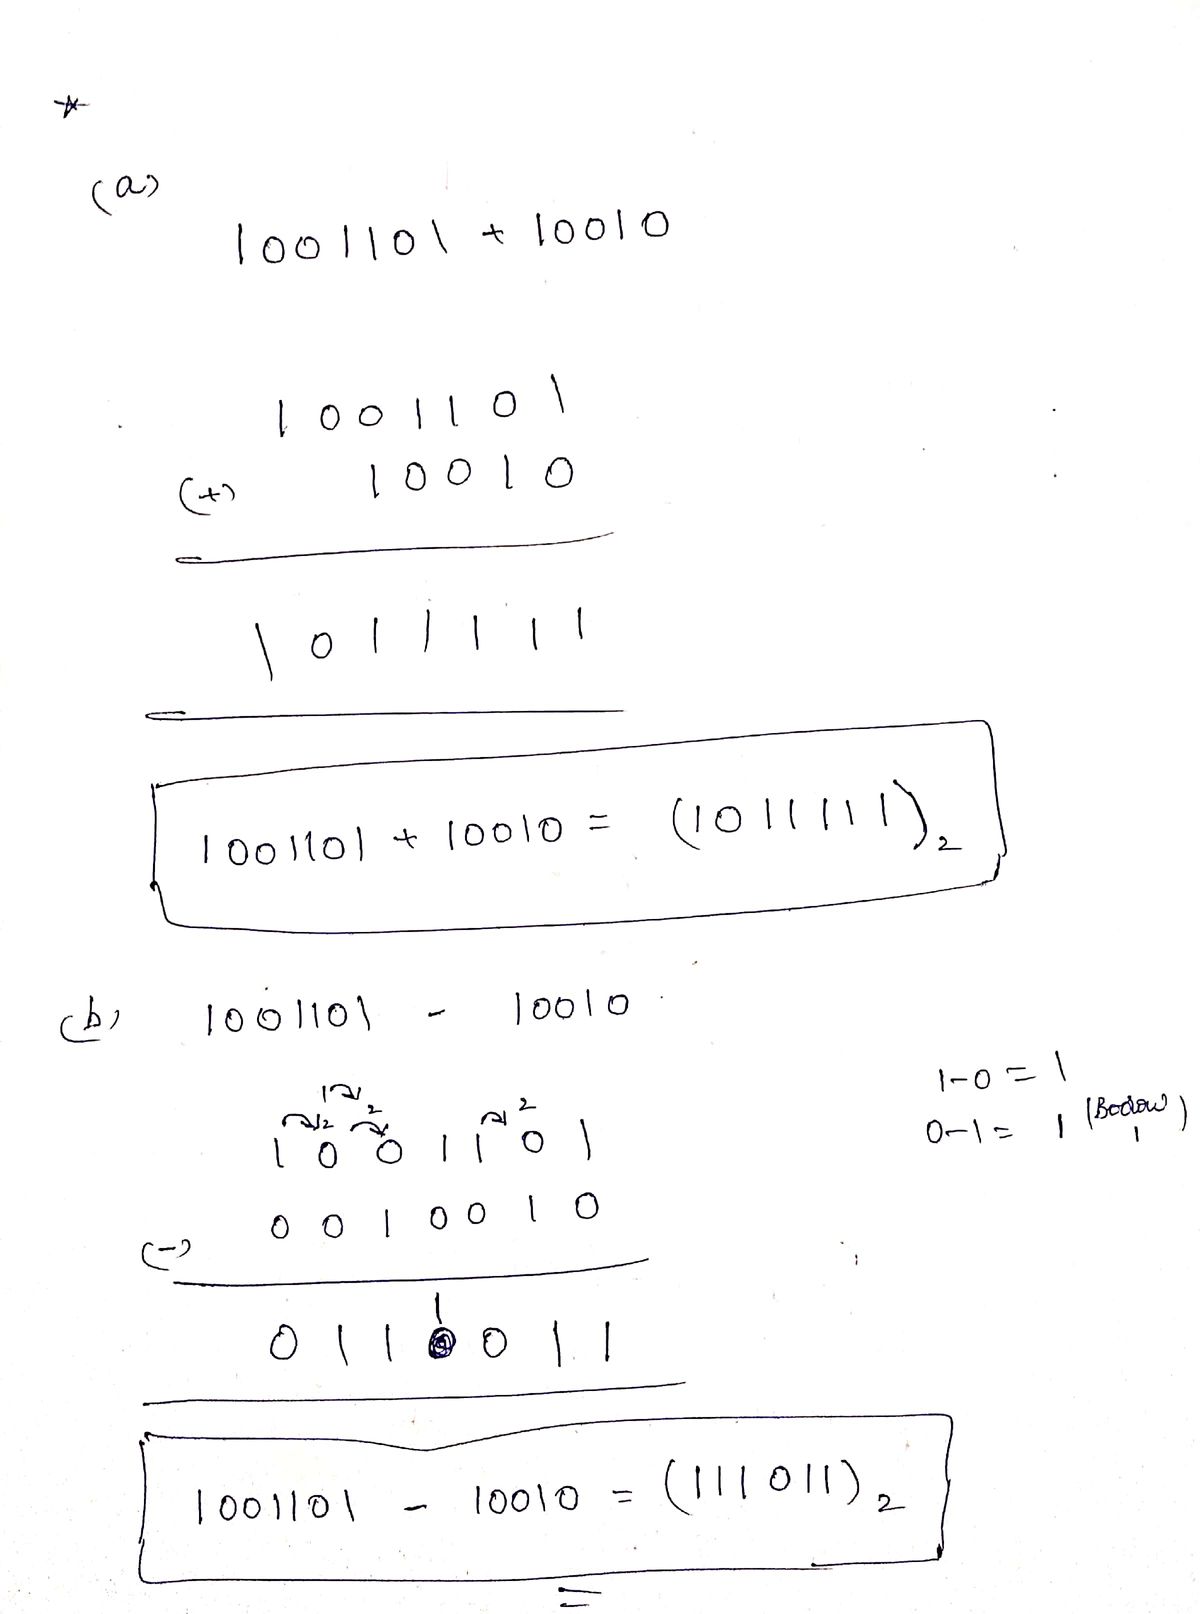 *
(a)
1001101 + 10010
1001101
(+) 10010
1011111
1001101 + 10010 = (1011111)2
(b) 1001101 - 10010
1-0 = 1
0-1 = 1 (Borrow 1)
1 2
2 2 2
1001101
0010010
(-)
1
011 011
1001101 - 10010 = (111011)2